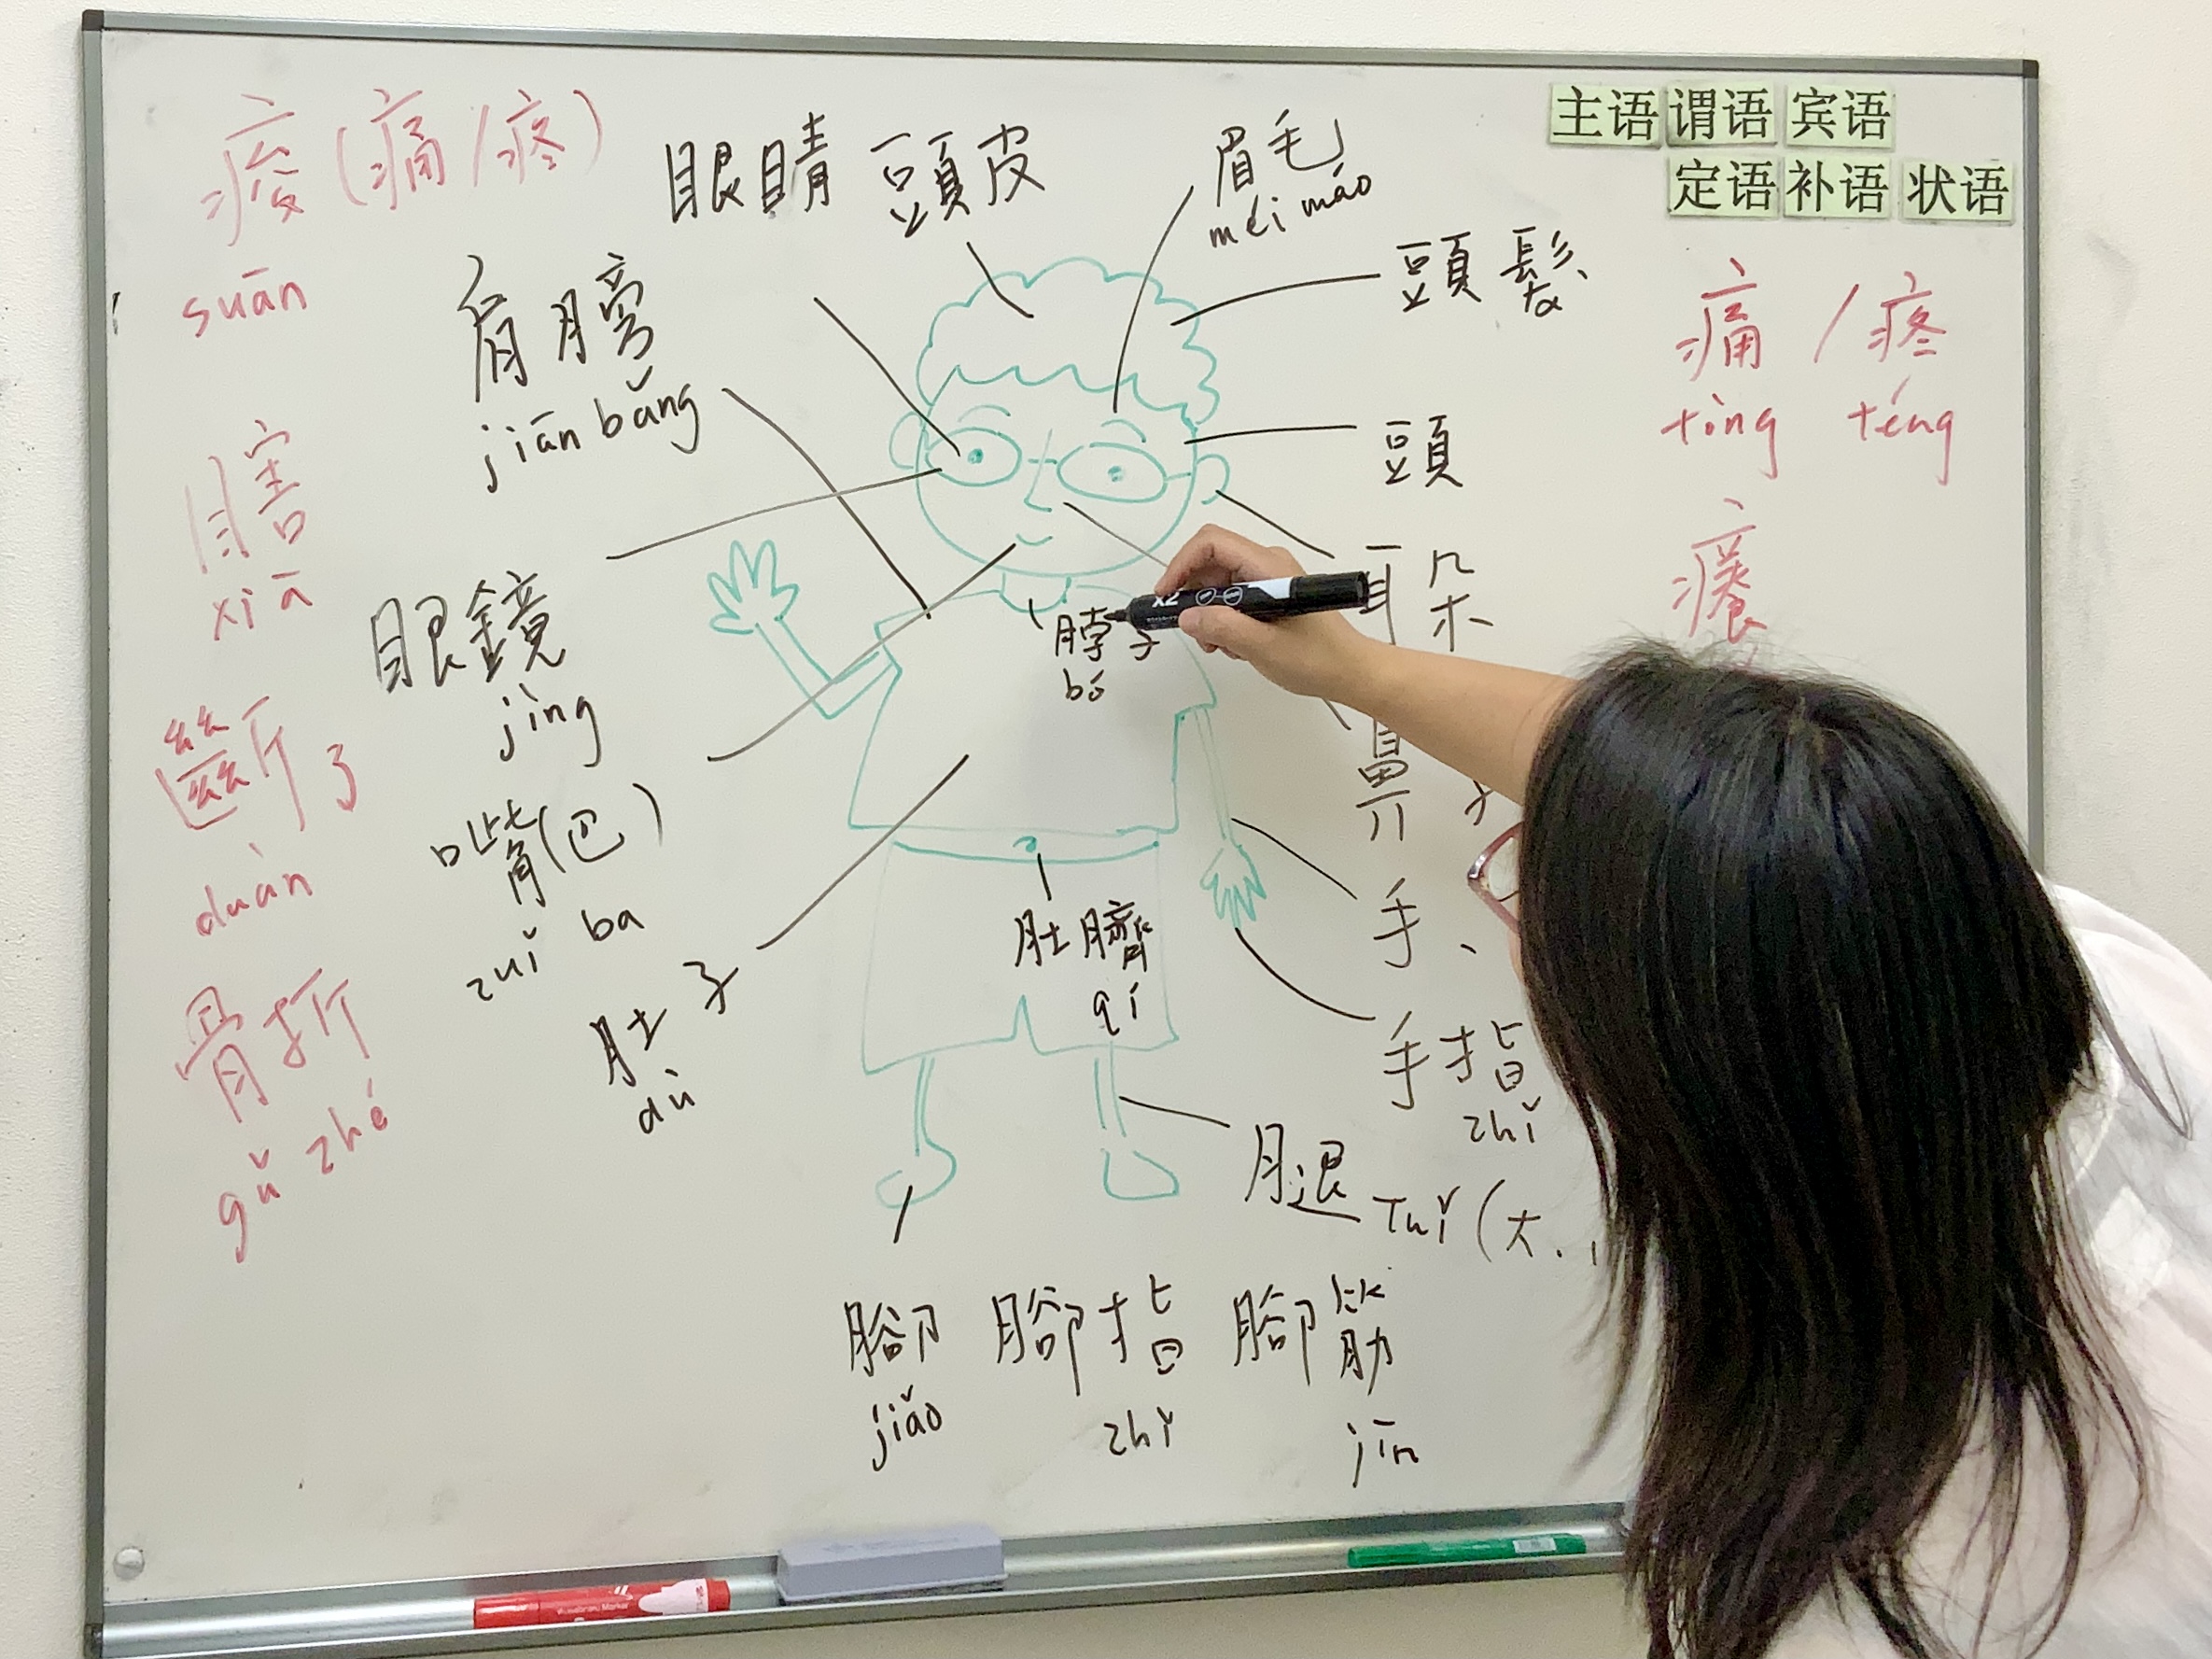 痠(痛/疼)
suān
眼睛
頭皮
眉毛
méi máo
主语 谓语 宾语
定语 补语 状语
肩膀
jiān bǎng
頭髮
痛/疼
tòng téng
頭
瞎
xiā
癢
耳朵
眼鏡
jìng
脖子
bó
X2
斷了
duàn
鼻
嘴(巴)
zuǐ ba
手、
肚臍
qí
肚子
dù
骨折
gǔ zhé
手指
zhǐ
腿 Tuǐ (大.
腳 腳指 腳筋
jiǎo zhǐ jīn